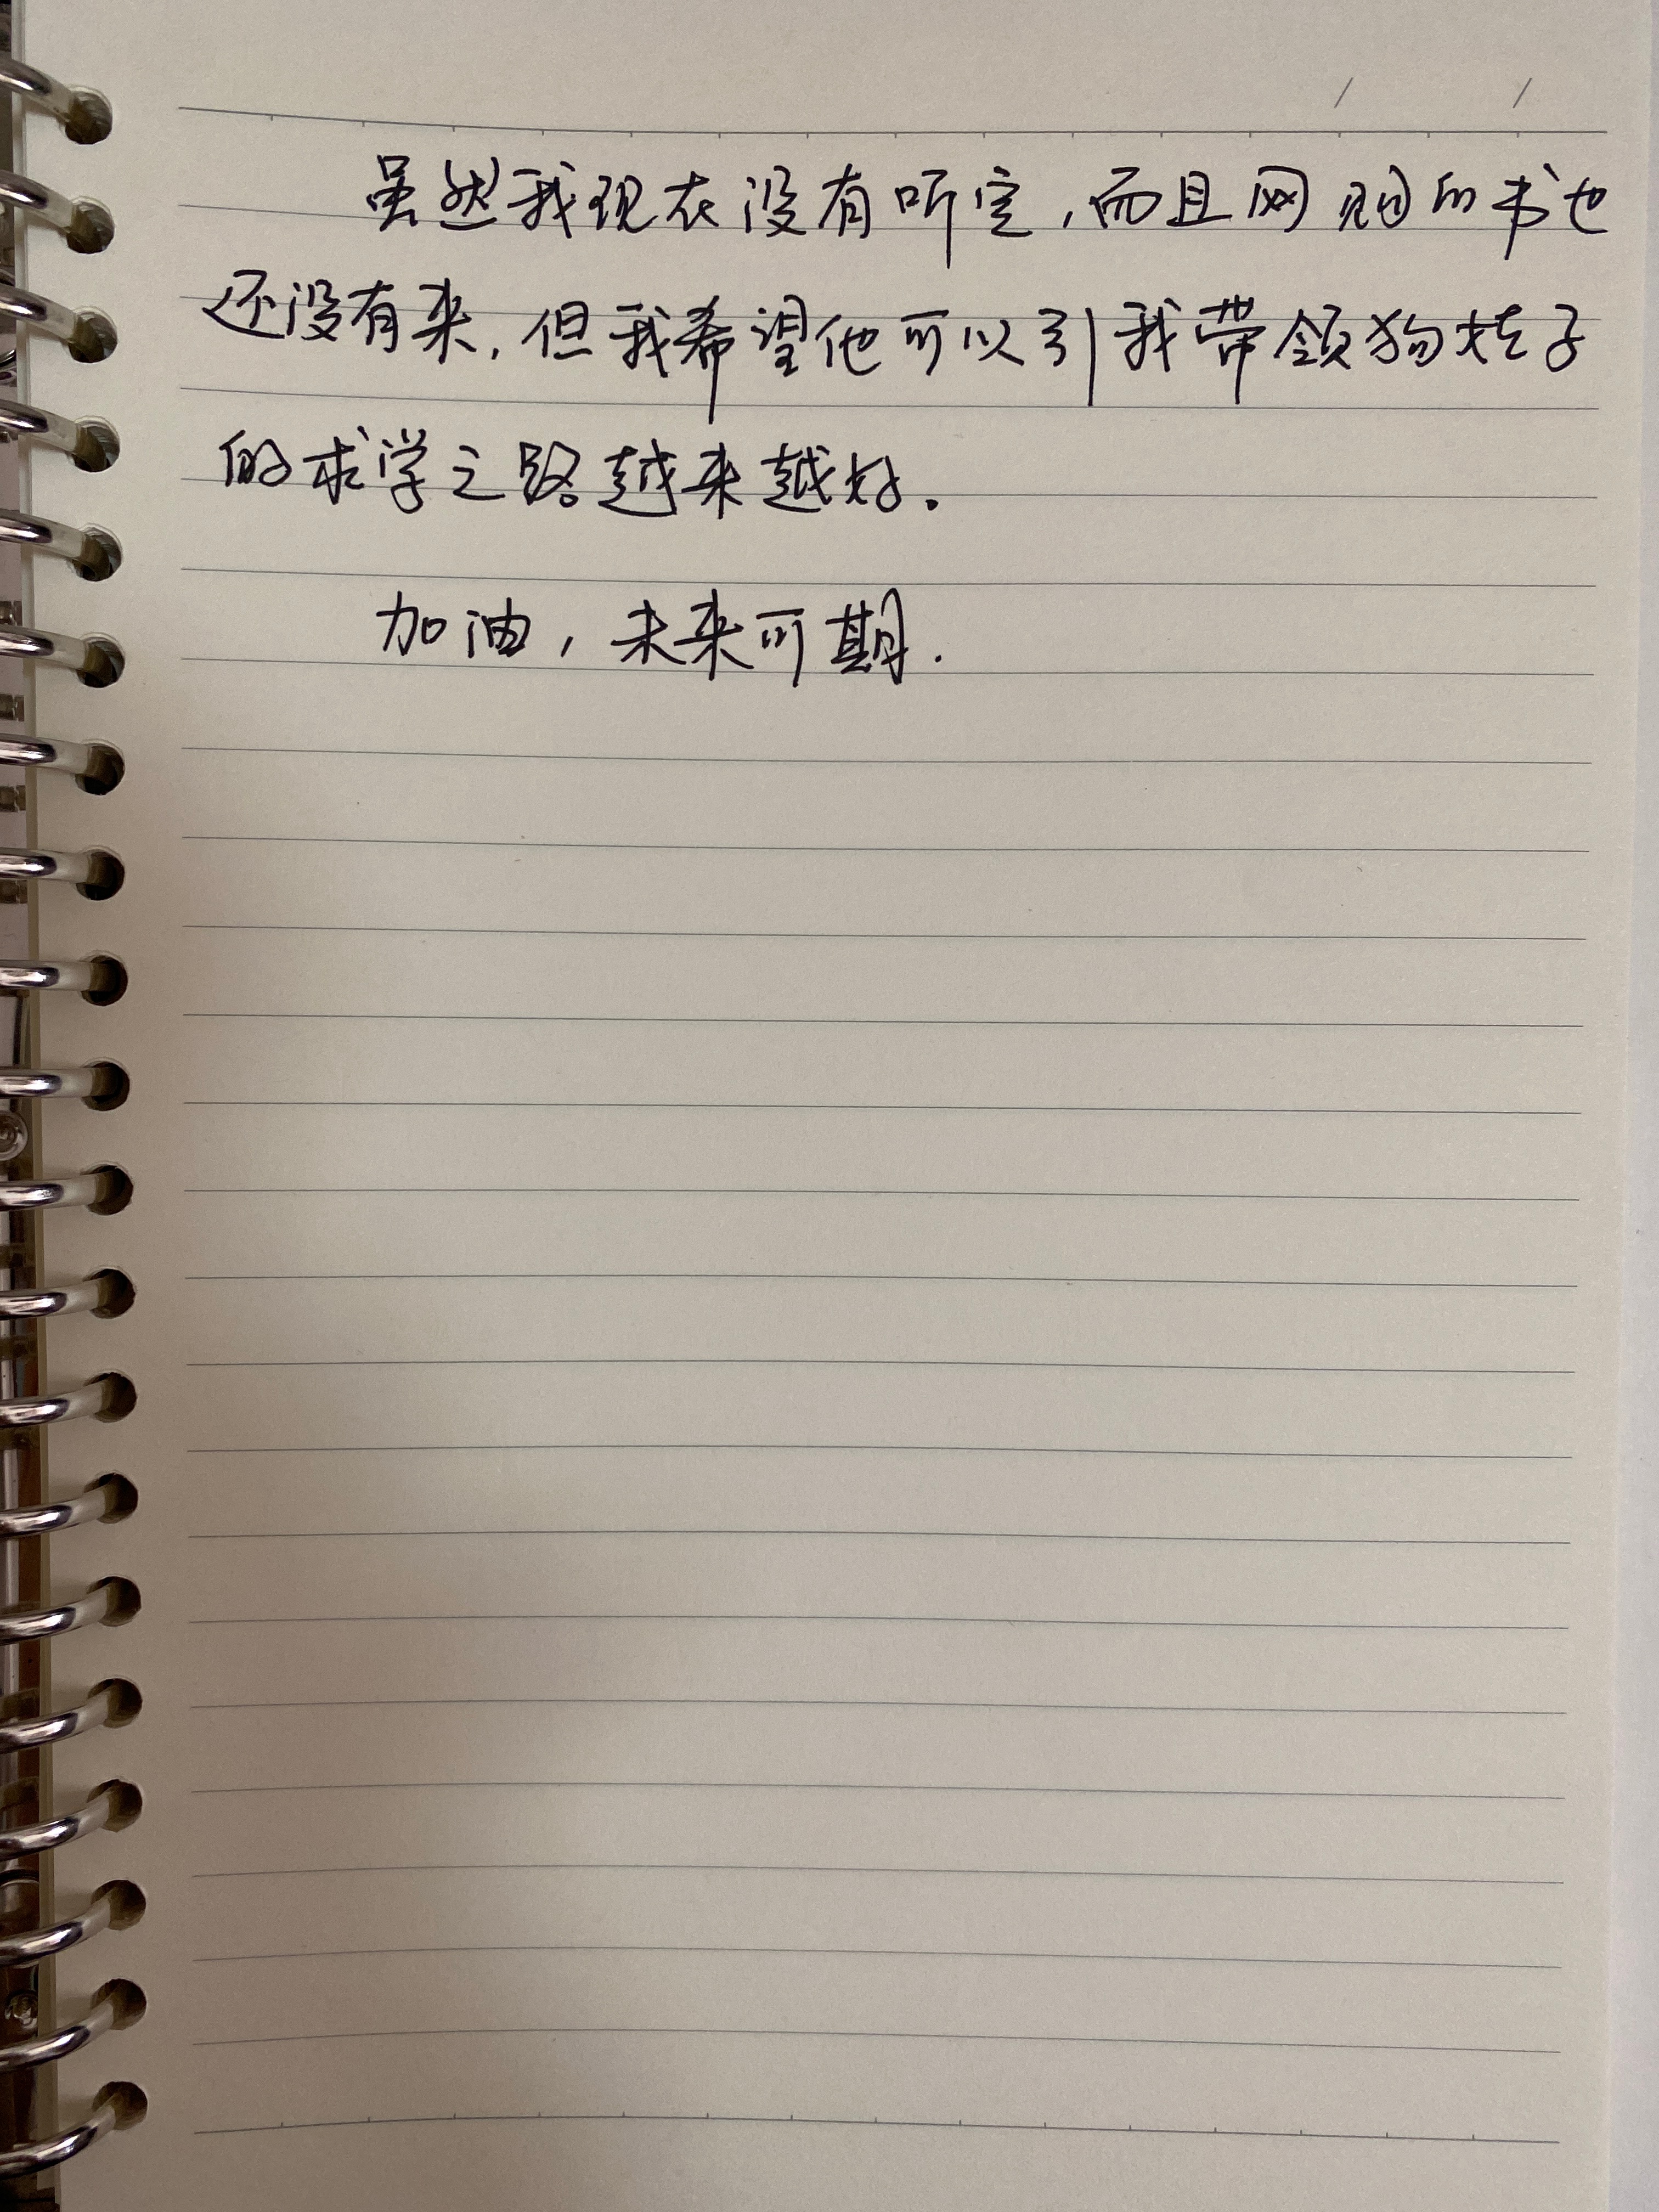 虽然我现在没有听完，而且网购的书也
还没有来，但我希望他可以引我带领狗娃子
的求学之路越来越好。
加油，未来可期.